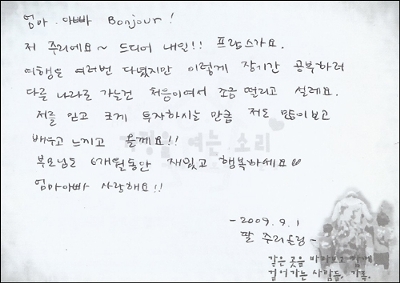 엄마. 아빠 Bonjour!
저 주리에요~ 드디어 내일!! 프랑스가요.
여행은 여러번 다녔지만 이렇게 장기간 공부하러
다른 나라로 가는건 처음이여서 조금 떨리고 설레요.
저를 믿고 크게 투자하시는 만큼 저도 많이보고
배우고 느끼고 올께요!!
부모님도 6개월동안 재밌고 행복하세요♡
엄마아빠 사랑해요!!
-2009.9.1
딸 주리드림~
같은 곳을 바라보고 함께
걸어가는 사람들, 가족.